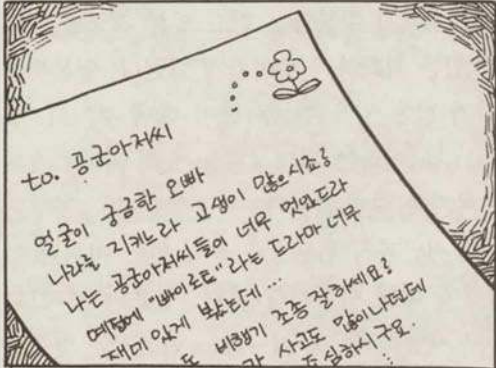 to. 공군아저씨
얼굴이 궁금한 오빠
나라를 지키느라 고생이 많으시죠?
나는 공군아저씨들이 너무 멋있드라
예전에 "빠이로트"라는 드라마 너무
재미 있게 봤는데...
도 비행기 조종 잘하세요?
가 사고도 많이나던데
조심하시구요.